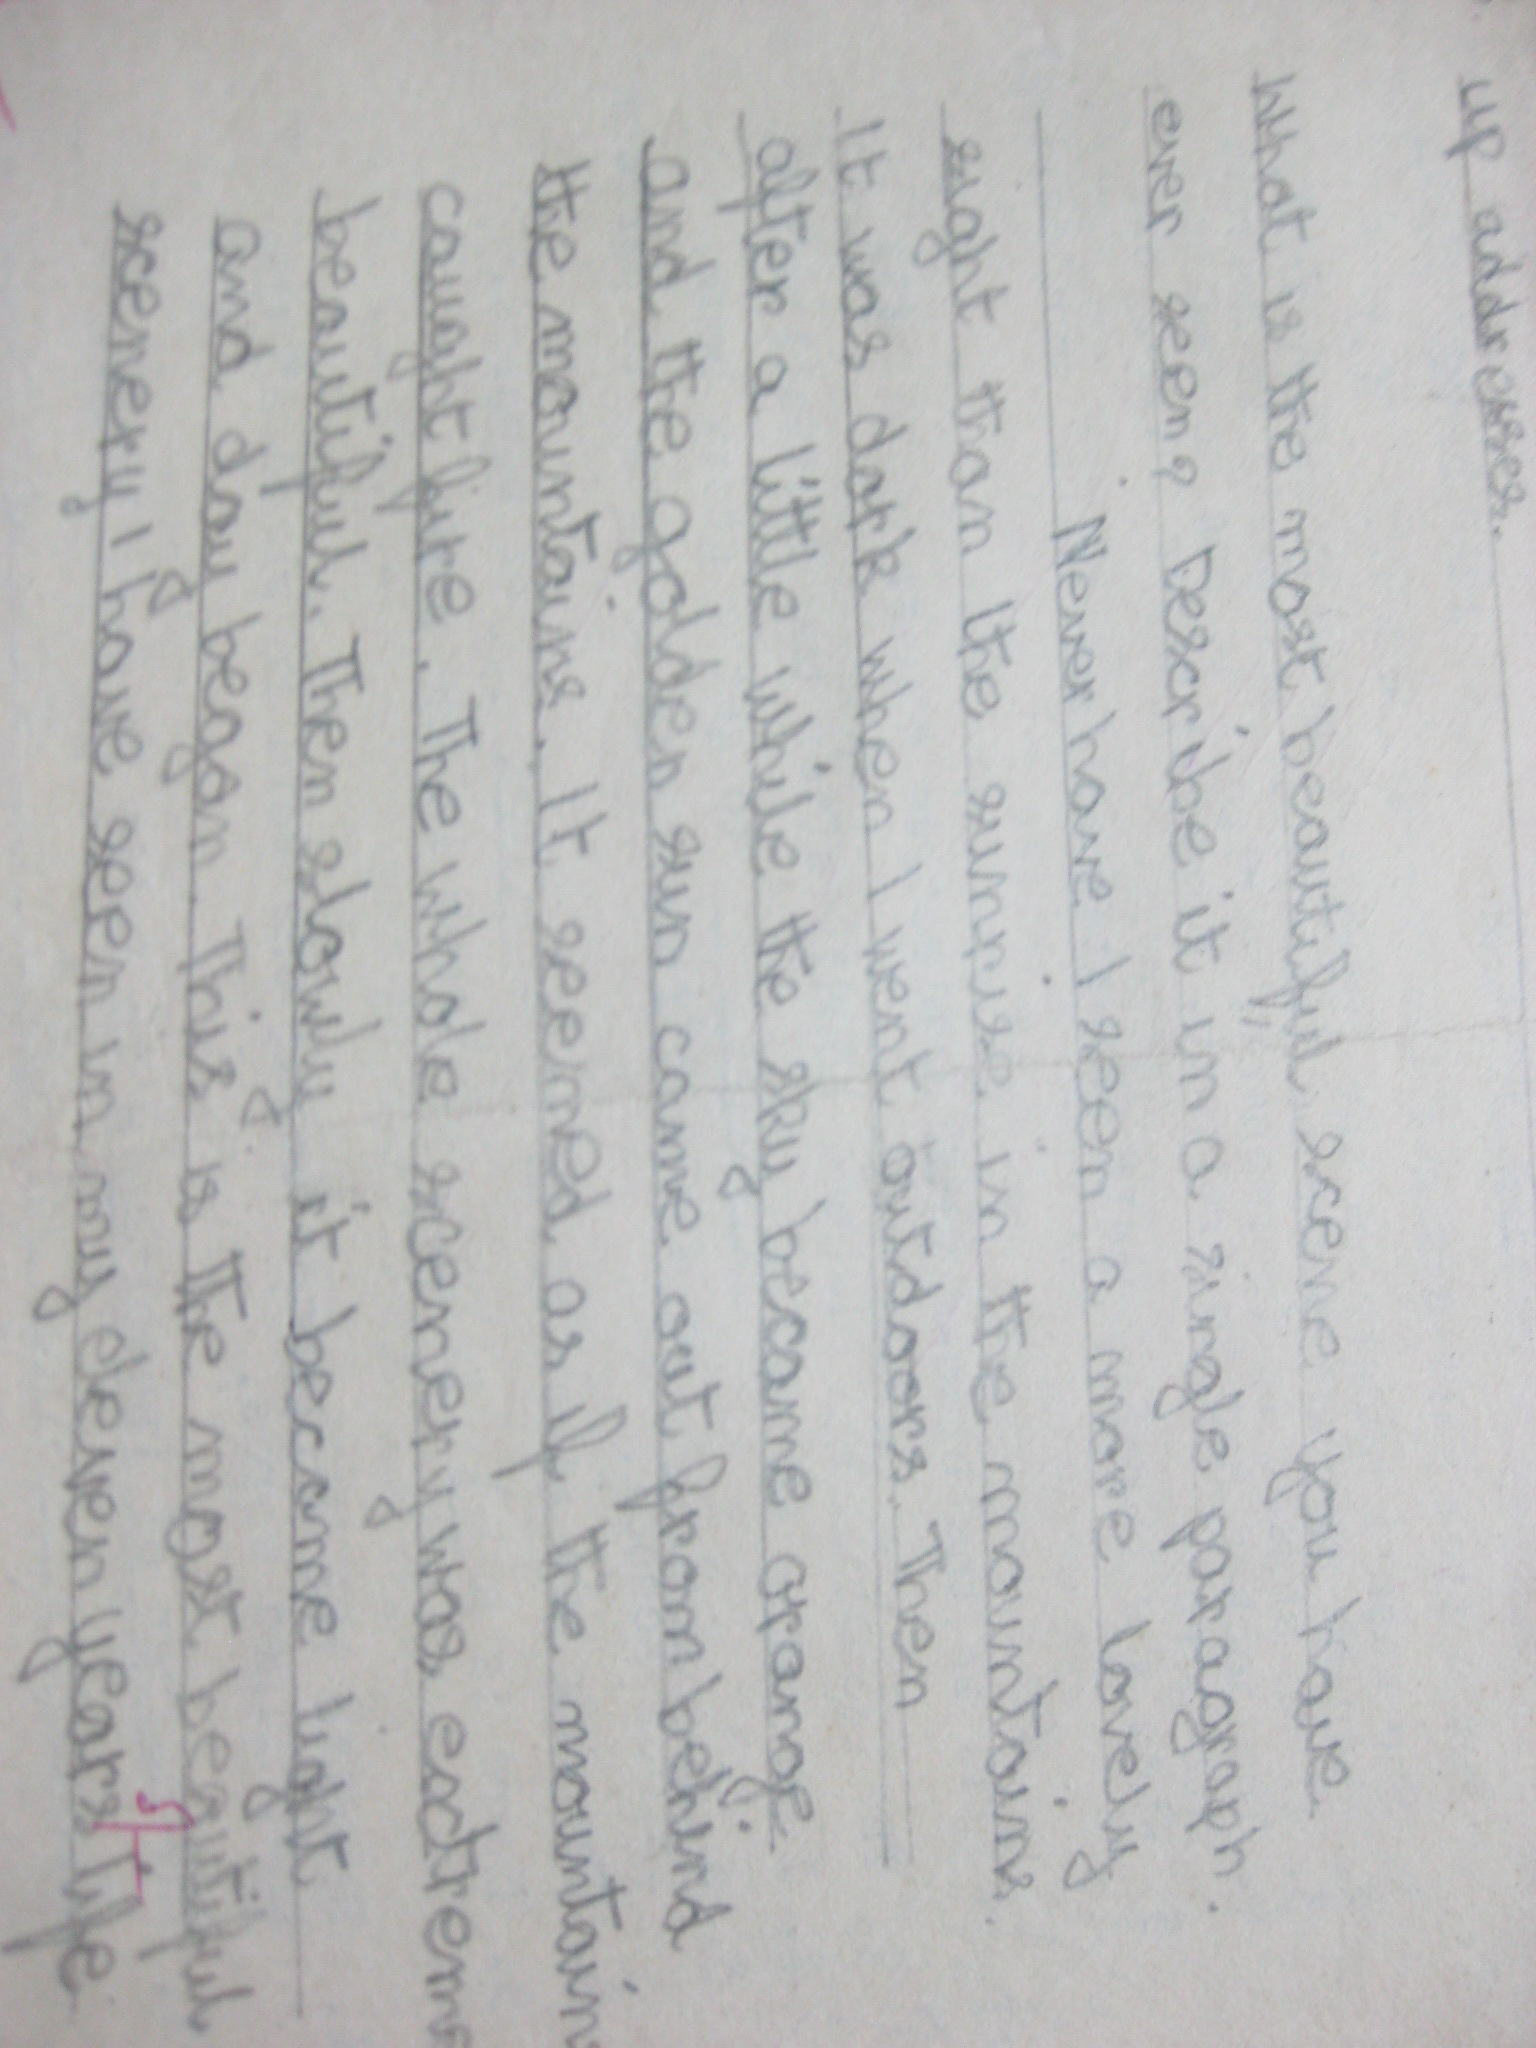 up addresses.
What is the most beautiful scene you have
ever seen? Describe it in a single paragraph.
Never have I seen a more lovely
sight than the sunrise in the mountains.
It was dark when I went outdoors. Then
after a little while the sky became orange
and the golden sun came out from behind
the mountains. It seemed as if the mountain
caught fire. The whole scenery was extreme
beautiful. Then slowly it became light
and day began. This is the most beautiful
scenery I have seen in my eleven years life.